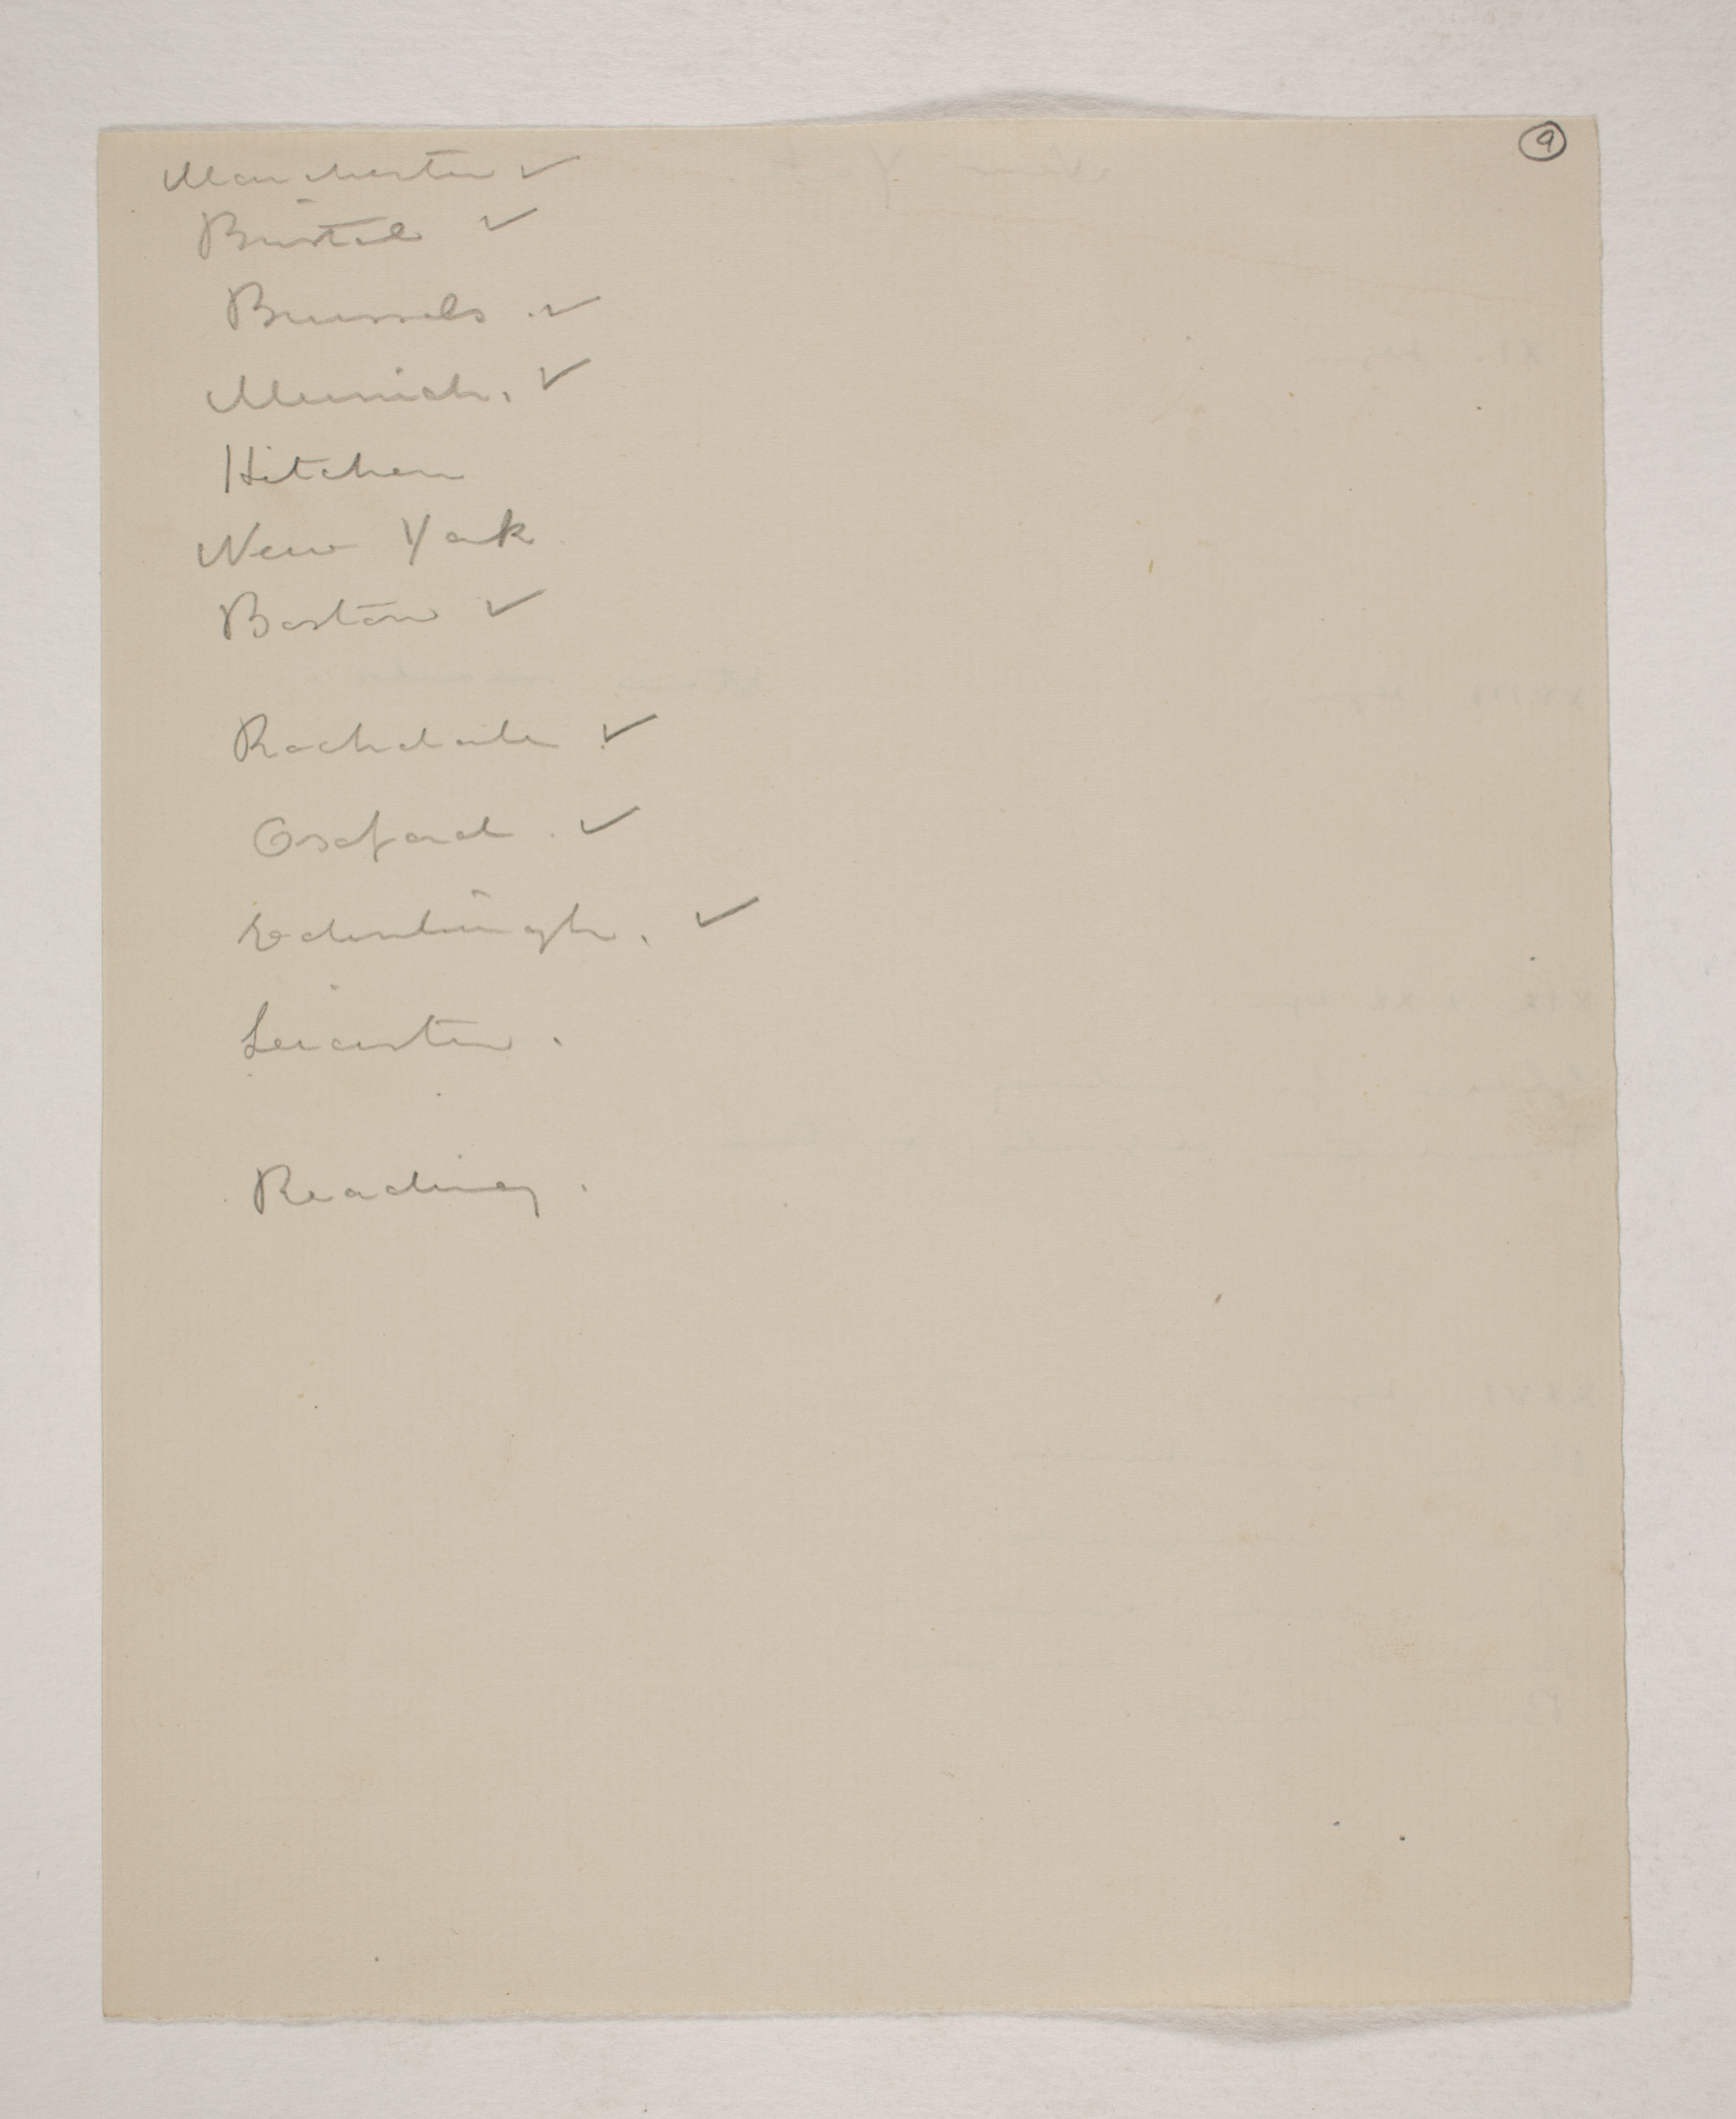 9
Manchester ✓
Bristol ✓
Brussels . ✓
Munich. ✓
Hitchen
New York
Boston ✓
Rochdale ✓
Oxford . ✓
Edinburgh. ✓
Leicester .
Reading .